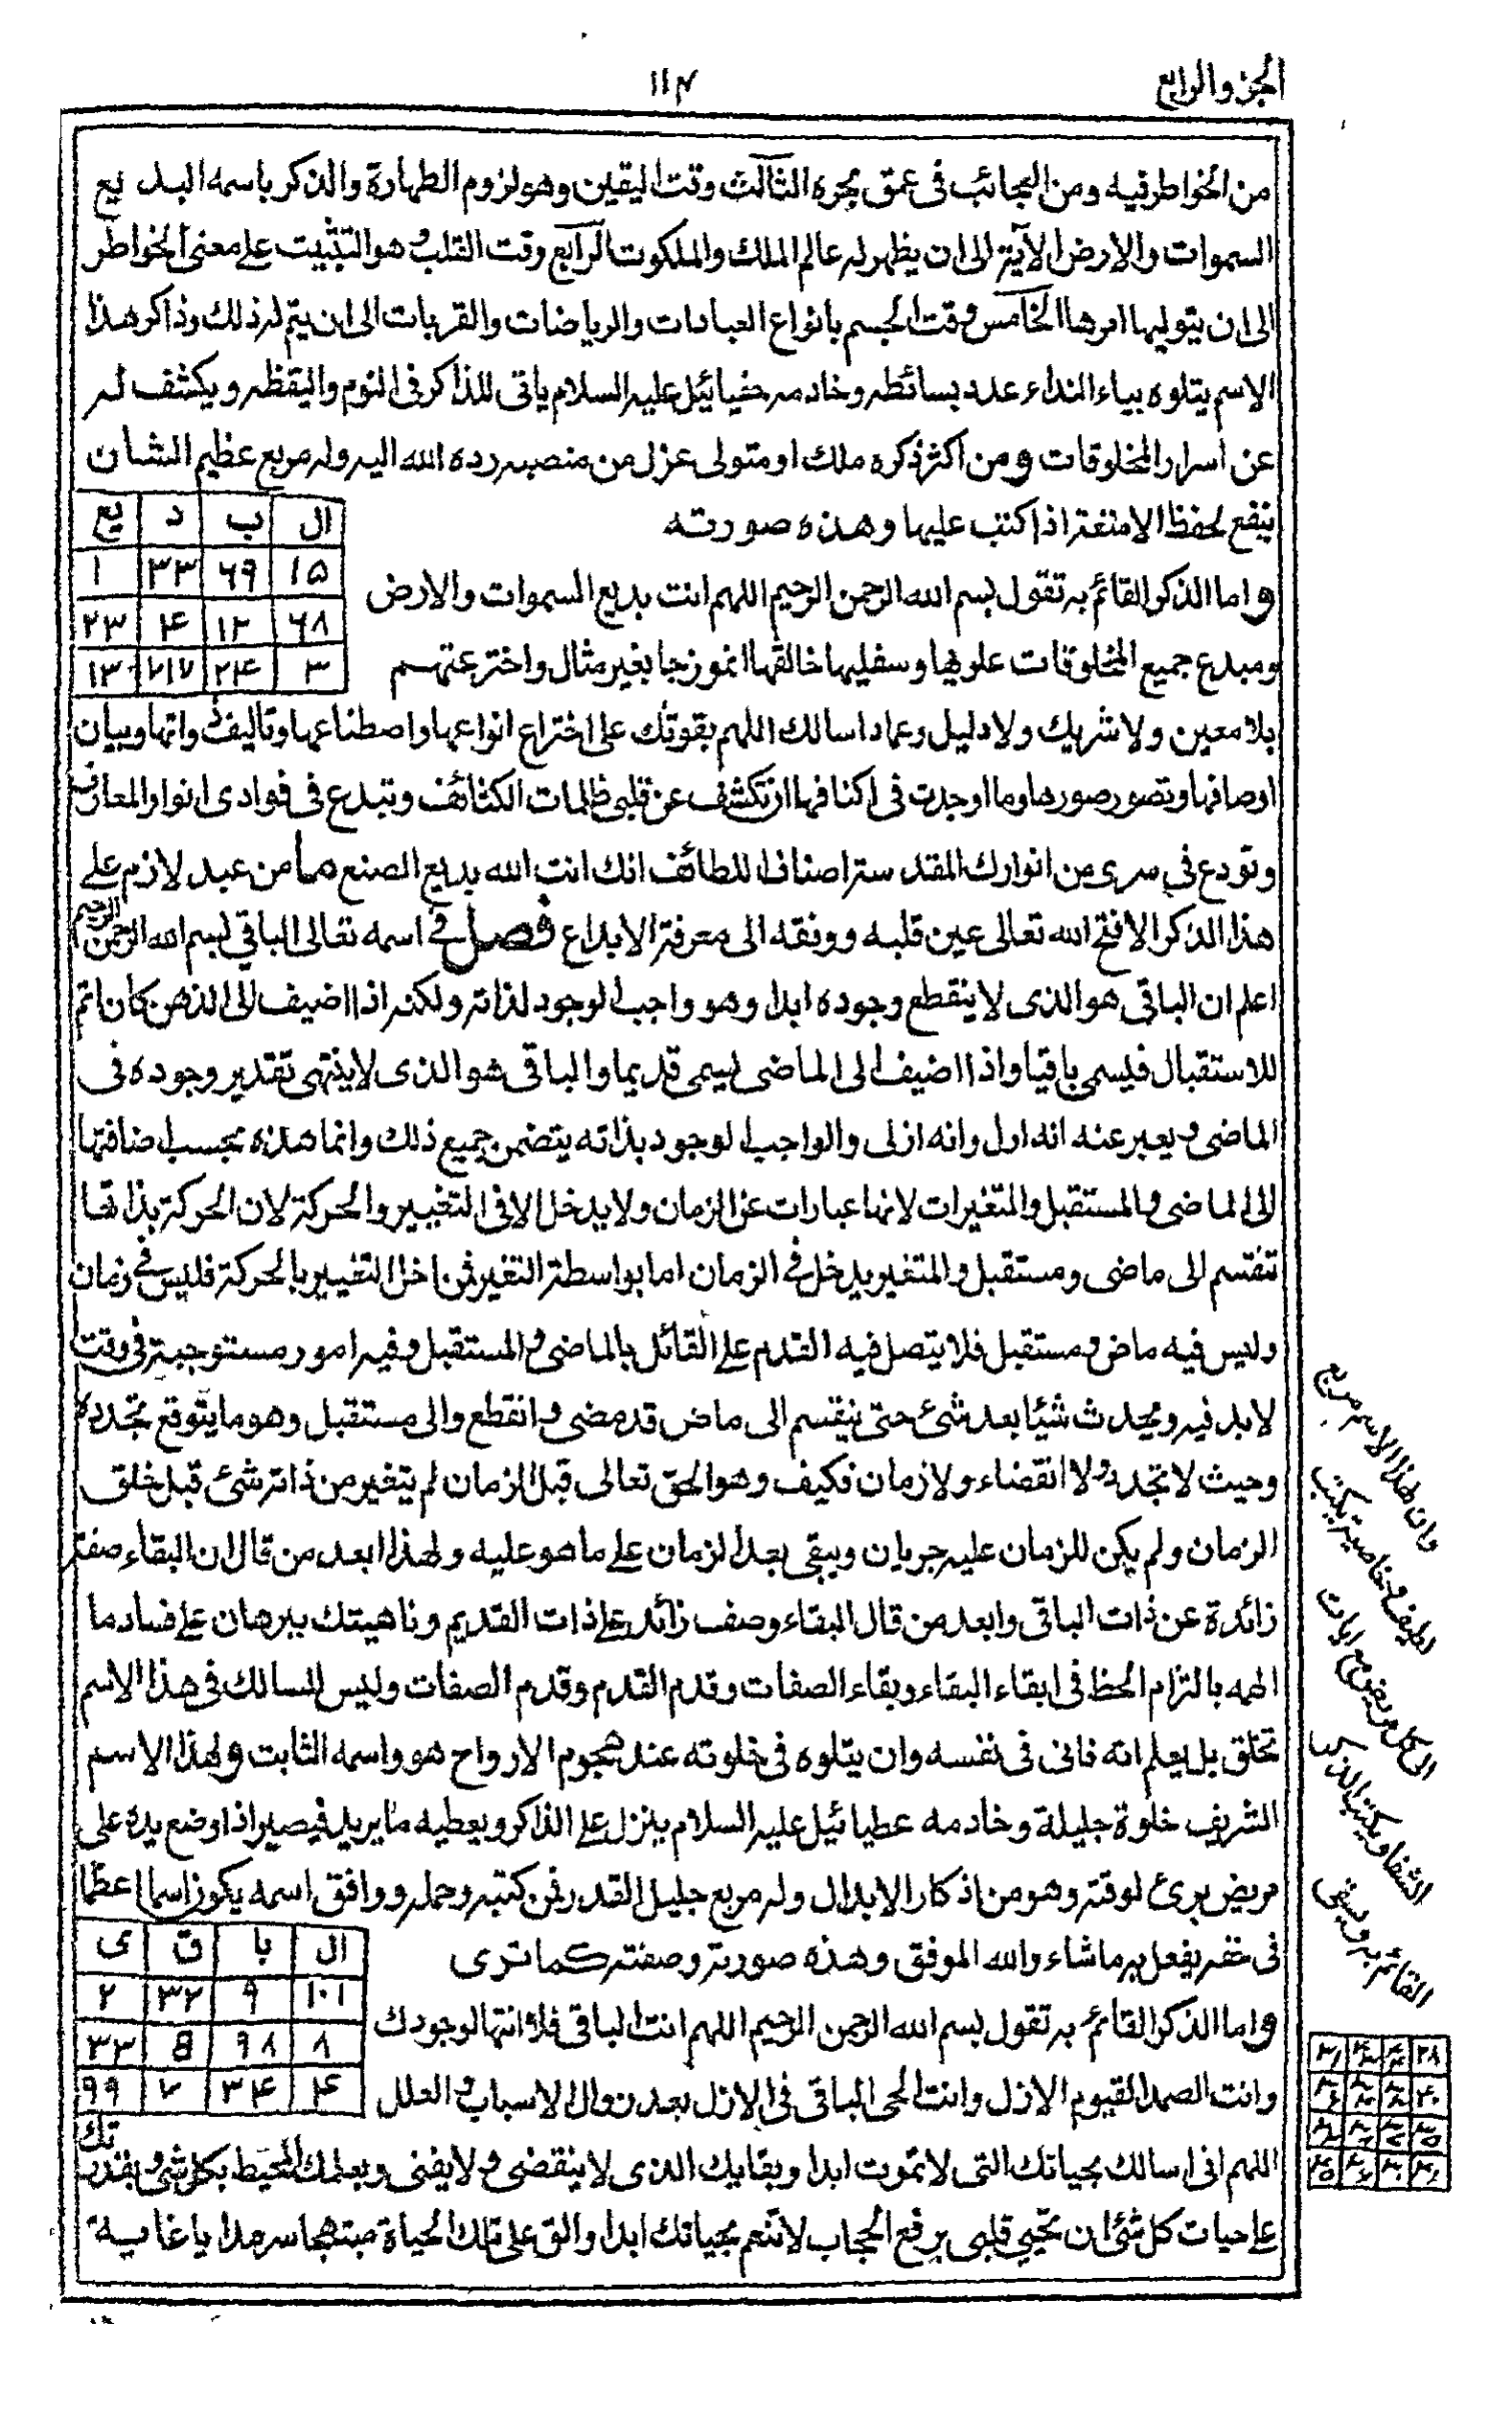 الجزء الرابع
١١٤
من الخواطر فيه ومن العجائب فى عمق بحره الثالث وقت اليقين وهو لزوم الطهارة والذكر باسمه البديع
السموات والارض الآية الى ان يظهر له عالم الملك والملكوت الرابع وقت القلب وهو التثبيت على معنى الخواطر
الى ان يتوليها امرها الخامس وقت الجسم بانواع العبادات والرياضات والقربات الى ان يتم له ذلك وذاكر هذا
الاسم يتلوه بياء النداء عدد بسائطه وخادمه حفيائيل عليه السلام ياتى للذاكر فى النوم واليقظه ويكشف له
عن اسرار المخلوقات ومن اكثر ذكره ملك او متولى عزل من منصبه رده الله اليه وله مربع عظيم الشان
ينفع لحفظ الامتعة اذا كتب عليها وهذه صورته
ال ب د يع
١۵ ۶٩ ٣٣ ١
۶٨ ١٢ ۴ ٢٣
٣ ٢۴ ٧١٧ ١٣
واما الذكر القائم به تقول بسم الله الرحمن الرحيم اللهم انت بديع السموات والارض
ومبدع جميع المخلوقات علويها وسفليها خالقها انموزجا بغير مثال واخترعتهم
بلا معين ولا شريك ولا دليل وعماد اسالك اللهم بقوتك على اختراع انواعها واصطناعها وتاليف ذواتها وبيان
اوصافها وتصور صورها وما اوجدت فى اكنافها ان تكشف عن قلبى ظلمات الكثائف وتبدع فى فوادى انوار المعارف
وتودع في سرى من انوارك المقدسة اصناف اللطائف انك انت الله بديع الصنع ما من عبد لازم على
هذا الذكر الا فتح الله تعالى عين قلبه ووفقه الى معرفة الابداع فصل فى اسمه تعالى الباقي بسم الله الرحمن الرحيم
اعلم ان الباقى هو الذى لا ينقطع وجوده ابدا وهو واجب الوجود لذاته ولكنه اذا اضيف الى الذهن كان اتم
للاستقبال فيسمى باقيا واذا اضيف الى الماضى يسمى قديما والباقى هو الذى لا ينتهى تقدير وجوده فى
الماضى ويعبر عنه انه اول وانه ازلى والواجب الوجود بذاته يتضمن جميع ذلك وانما هذه بحسب اضافتها
الى الماضى والمستقبل والمتغيرات لانها عبارات عن الزمان ولا يدخل الا فى التغيير والحركة لان الحركة بذاتها
تنقسم الى ماضى ومستقبل والمتغير يدخل فى الزمان اما بواسطة التغير فمن اخل التغيير بالحركة فليس فى زمان
وليس فيه ماض ومستقبل فلا يتصل فيه القدم على القائل بالماضى والمستقبل وفيه امور مستوجبة فى وقت
لا بد فيه ويحدث شيئا بعد شئ حتى ينقسم الى ماض قد مضى وانقطع والى مستقبل وهو ما يتوقع تجدده
وحيث لا تجدد ولا انقضاء ولا زمان فكيف وهو الحق تعالى قبل الزمان لم يتغير من ذاته شئ قبل خلق
الزمان ولم يكن للزمان عليه جريان ويبقى بعد الزمان على ما هو عليه ولهذا ابعد من قال ان البقاء صفة
زائدة عن ذات الباقى وابعد من قال البقاء وصف زائد على ذات القديم وناهيتك ببرهان على فساد ما
الهمه بالتزام الحظ فى ابقاء البقاء وبقاء الصفات وقدم القدم وقدم الصفات وليس للسالك فى هذا الاسم
تخلق بل يعلم انه فانى فى نفسه وان يتلوه فى خلوته عند هجوم الارواح هو واسمه الثابت ولهذا الاسم
الشريف خلوة جليلة وخادمه عطيائيل عليه السلام ينزل على الذاكر ويعطيه ما يريد فيصير اذا وضع يده على
مريض برئ لوقته وهو من اذكار الابدال وله مربع جليل القدر فمن كتبه وحمله ووافق اسمه يكون اسما اعظما
فى حقه يفعل به ما شاء والله الموفق وهذه صورته وصفته كما ترى
ال با ق ى
١٠١ ٩ ٣٢ ٢
٨ ٩٨ 8 ٣٣
۴ ٣۴ ٧ ٩٩
واما الذكر القائم به تقول بسم الله الرحمن الرحيم اللهم انت الباقى فلا انتها لوجودك
وانت الصمد القيوم الازل وانت الحى الباقى فى الازل بعد زوال الاسباب والعلل
اللهم انى اسالك بحياتك التى لا تموت ابدا وبقايك الذى لا ينقضى ولا يفنى وبعلمك المحيط بكل شئ وبقدرتك
على حيات كل شئ ان تحيي قلبى برفع الحجاب لاتنعم بحياتك ابدا والق على تلك الحياة مبتهجا سرمدا يا غاية
وان لهذا الاسم مربع
لطيف وخاصيته يكتب
الى كل مريض مع ايات
الشفا ويكتب الذكر
القائم به ويسقى